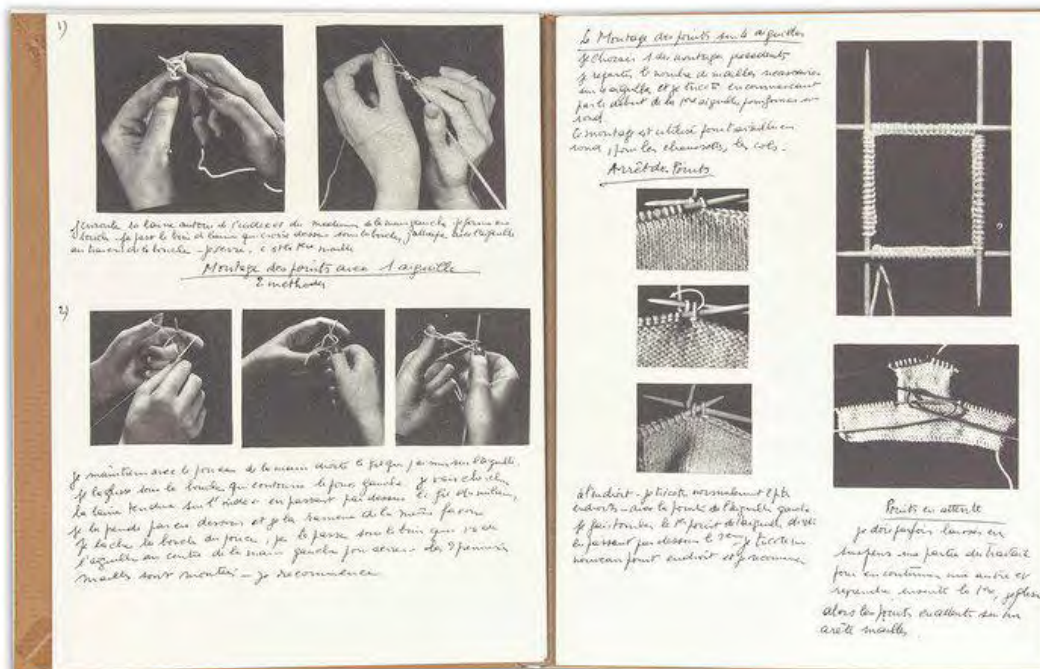 1)
J'enroule la laine autour de l'index et du medium de la main gauche je forme une
boucle. Je passe le brin de laine qui croise dessus sous la boucle, j'attrape avec l'aiguille
au travers de la boucle - je serre. c'est la 1ère maille
Montage des points avec 1 aiguille
2 methodes
2)
Je maintiens avec le pouce de la main droite le fil que j'ai mis sur l'aiguille.
Je la glisse sous la boucle qui contourne le pouce gauche. je vais chercher
la laine tendue sur l'index en passant par dessus le fil du milieu,
je la prends par en dessous et je la ramène de la même façon
je lache la boucle du pouce, je le passe sous le brin qui va de
l'aiguille au centre de la main gauche pour serrer - les 2 premières
mailles sont montées - je recommence
Le Montage des points sur 4 aiguilles
Je choisis 1 des montages précédents
je répartis le nombre de mailles necessaires
sur 4 aiguilles et je tricote en commencant
par le début de la 1ère aiguille pour former un
rond
Ce montage est utilisé pour travailler en
rond, pour les chaussons, les cols.
Arrêt des Points
à l'endroit - je tricote normalement 2 pts
endroits - avec la pointe de l'aiguille gauche
je fais tomber le 1er point de l'aiguille droite
en passant par dessus le 2ème je tricote un
nouveau point endroit et je recommence
Points en attente
je dois parfois laisser en
suspens une partie du travail
pour en continuer une autre et
reprendre ensuite la 1ère, je glisse
alors les points en attente sur un
arête mailles.